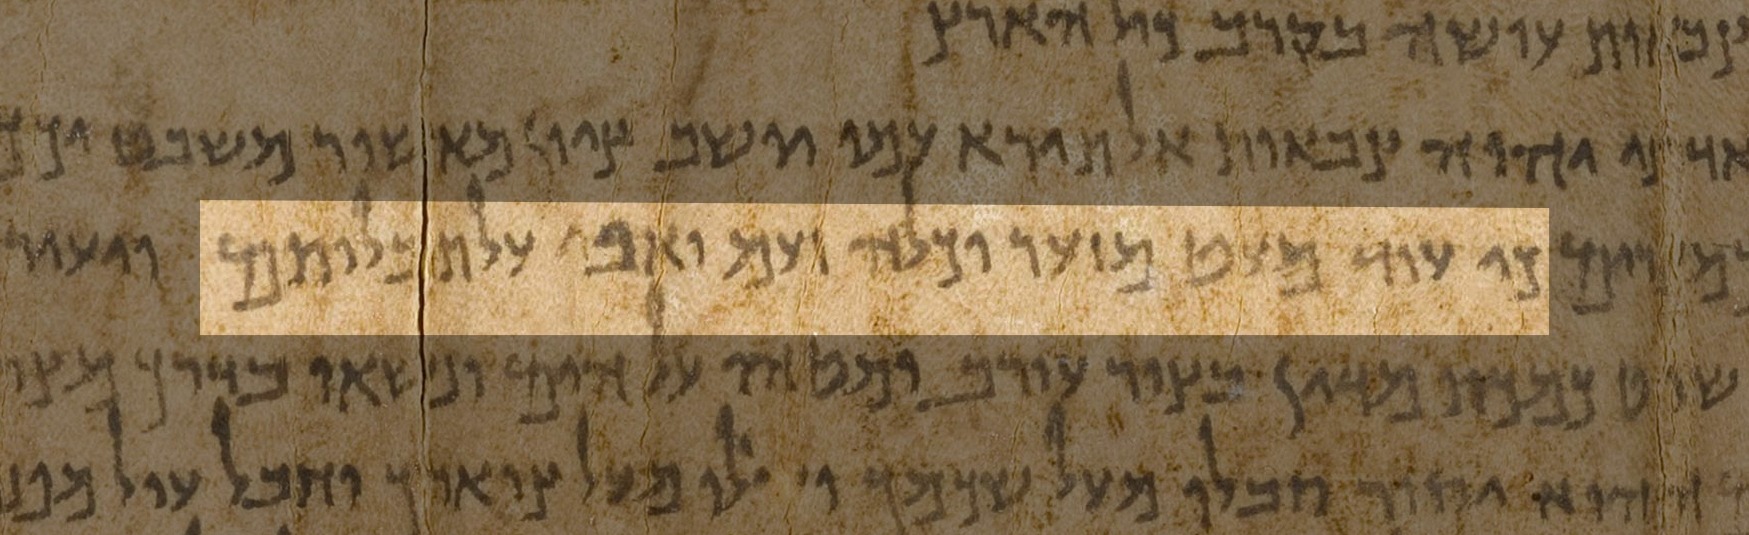 צבאות עושה בקרב כול הארץ
אדוני יהוה צבאות אל תירא עמי יושב ציון מאשור משבט
כי עוד מעט מזער וכלה זעם ואפי על תבליתם ויעור
שוט כמכת מדין בצור עורב ומטהו על הים ונשאו בדרך
ההוא יסור סבלו מעל שכמך מעל צוארך וחבל עול מפני